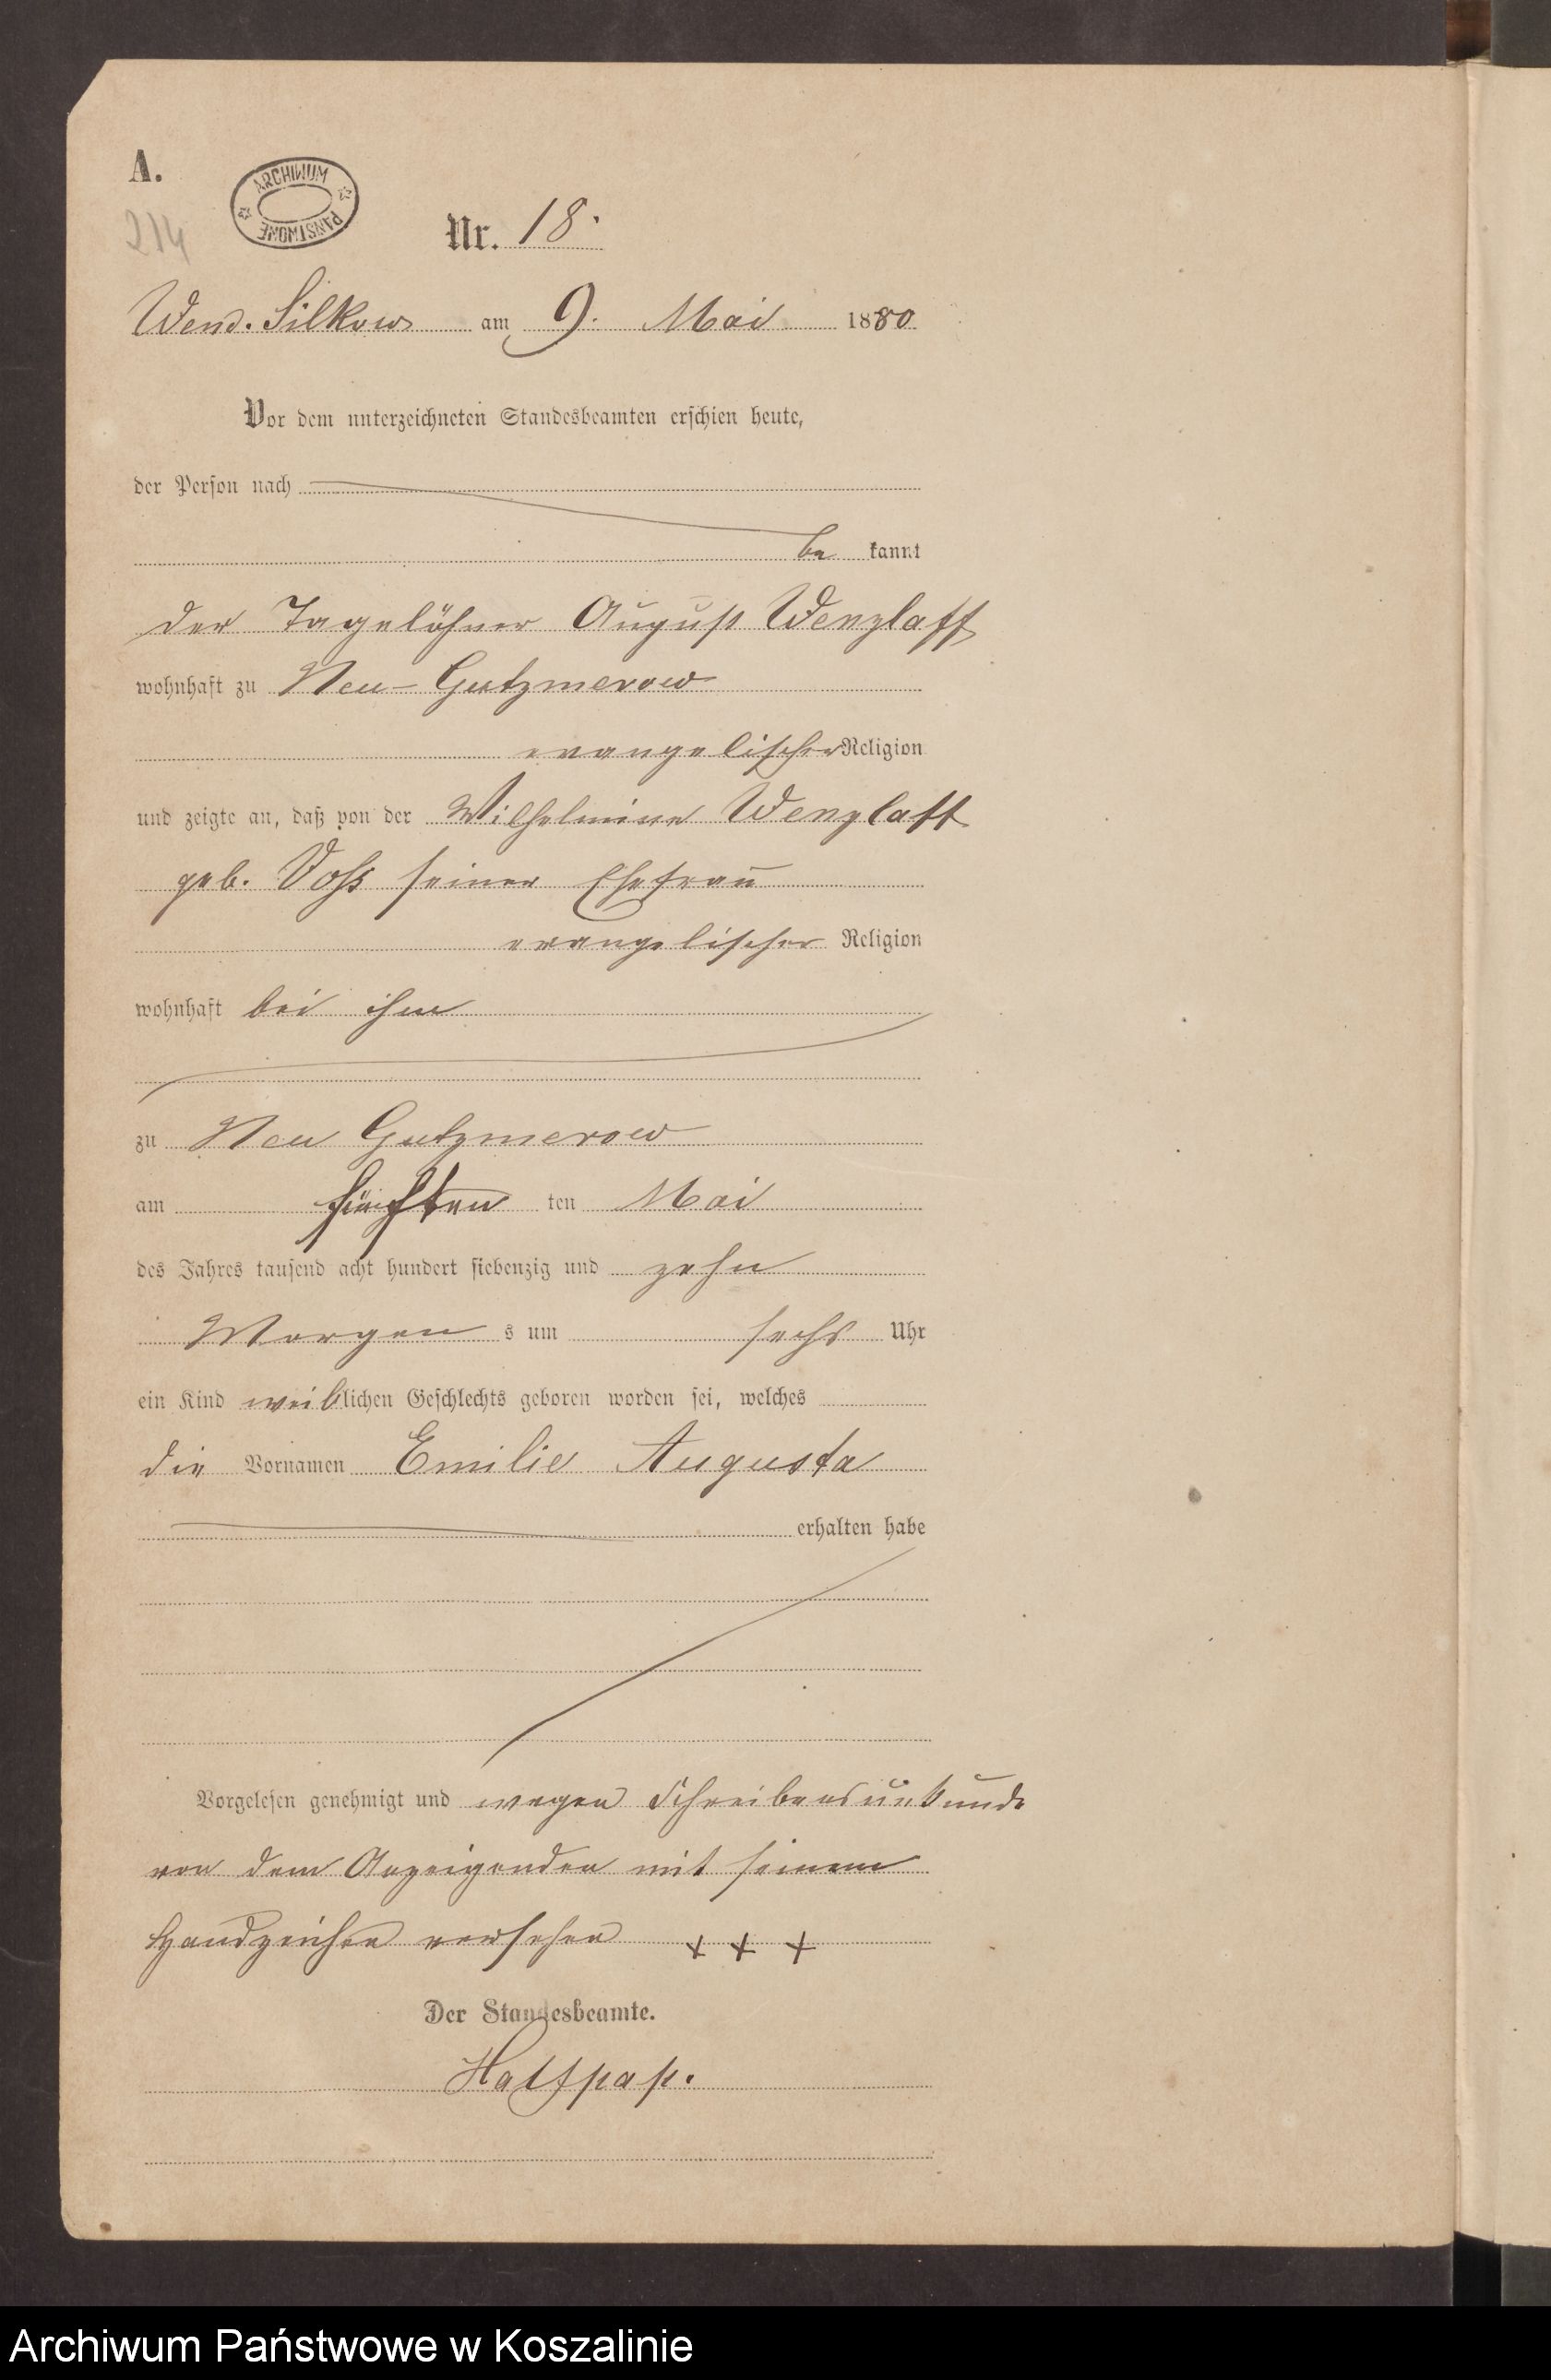 A.
ARCHIWUM PAŃSTWOWE
214
Nr. 18.
Wend. Silkow am 9. Mai 1880
Vor dem unterzeichneten Standesbeamten erschien heute,
der Person nach
be kannt
der Tagelöhner August Wenzlaff
wohnhaft zu Neu-Gutzmerow
evangelischer Religion
und zeigte an, daß von der Wilhelmine Wenzlaff
geb. Voß seiner Ehefrau
evangelischer Religion
wohnhaft bei ihm
zu Neu Gutzmerow
am fünften ten Mai
des Jahres tausend acht hundert siebenzig und zehn
Morgen s um sechs Uhr
ein Kind weiblichen Geschlechts geboren worden sei, welches
die Vornamen Emilie Augusta
erhalten habe
Vorgelesen genehmigt und wegen Schreibensunkunde
von dem Anzeigenden mit seinem
Handzeichen versehen + + +
Der Standesbeamte.
Halfpap.
Archiwum Państwowe w Koszalinie